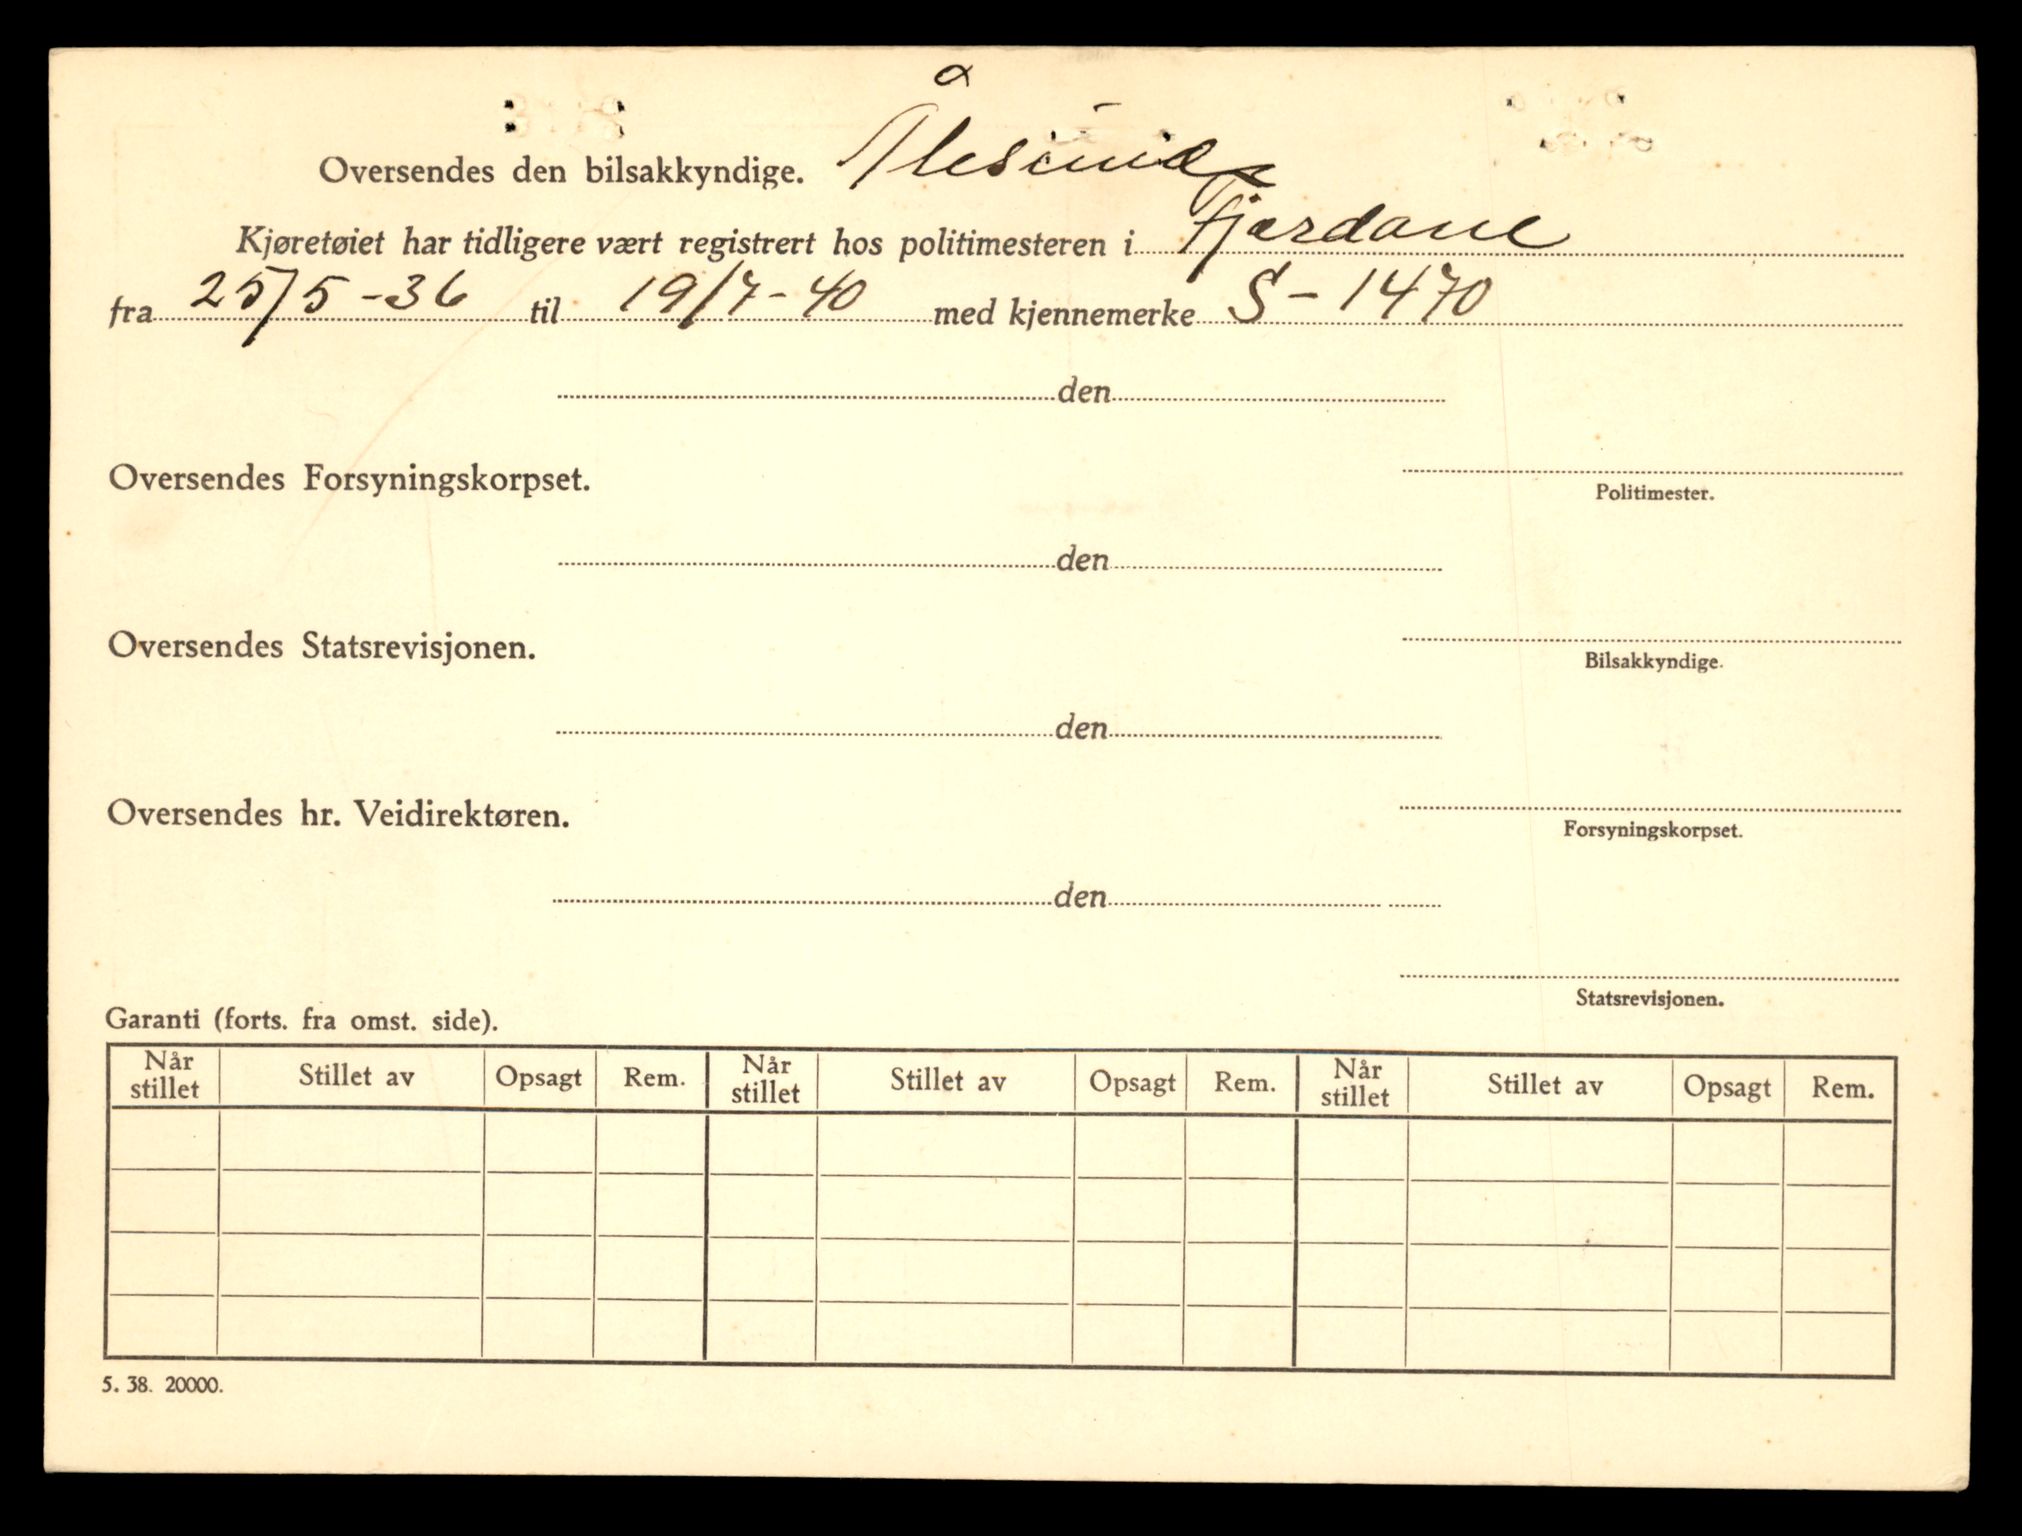 Oversendes den bilsakkyndige. Ålesund
Kjøretøiet har tidligere vært registrert hos politimesteren i Fjordane
fra 25/5-36 til 19/7-40 med kjennemerke S-1470
den
Oversendes Forsyningskorpset.
Politimester.
den
Oversendes Statsrevisjonen.
Bilsakkyndige.
den
Oversendes hr. Veidirektøren.
Forsyningskorpset.
den
Statsrevisjonen.
Garanti (forts. fra omst. side).
Når stillet Stillet av Opsagt Rem. Når stillet Stillet av Opsagt Rem. Når stillet Stillet av Opsagt Rem.
5. 38. 20000.